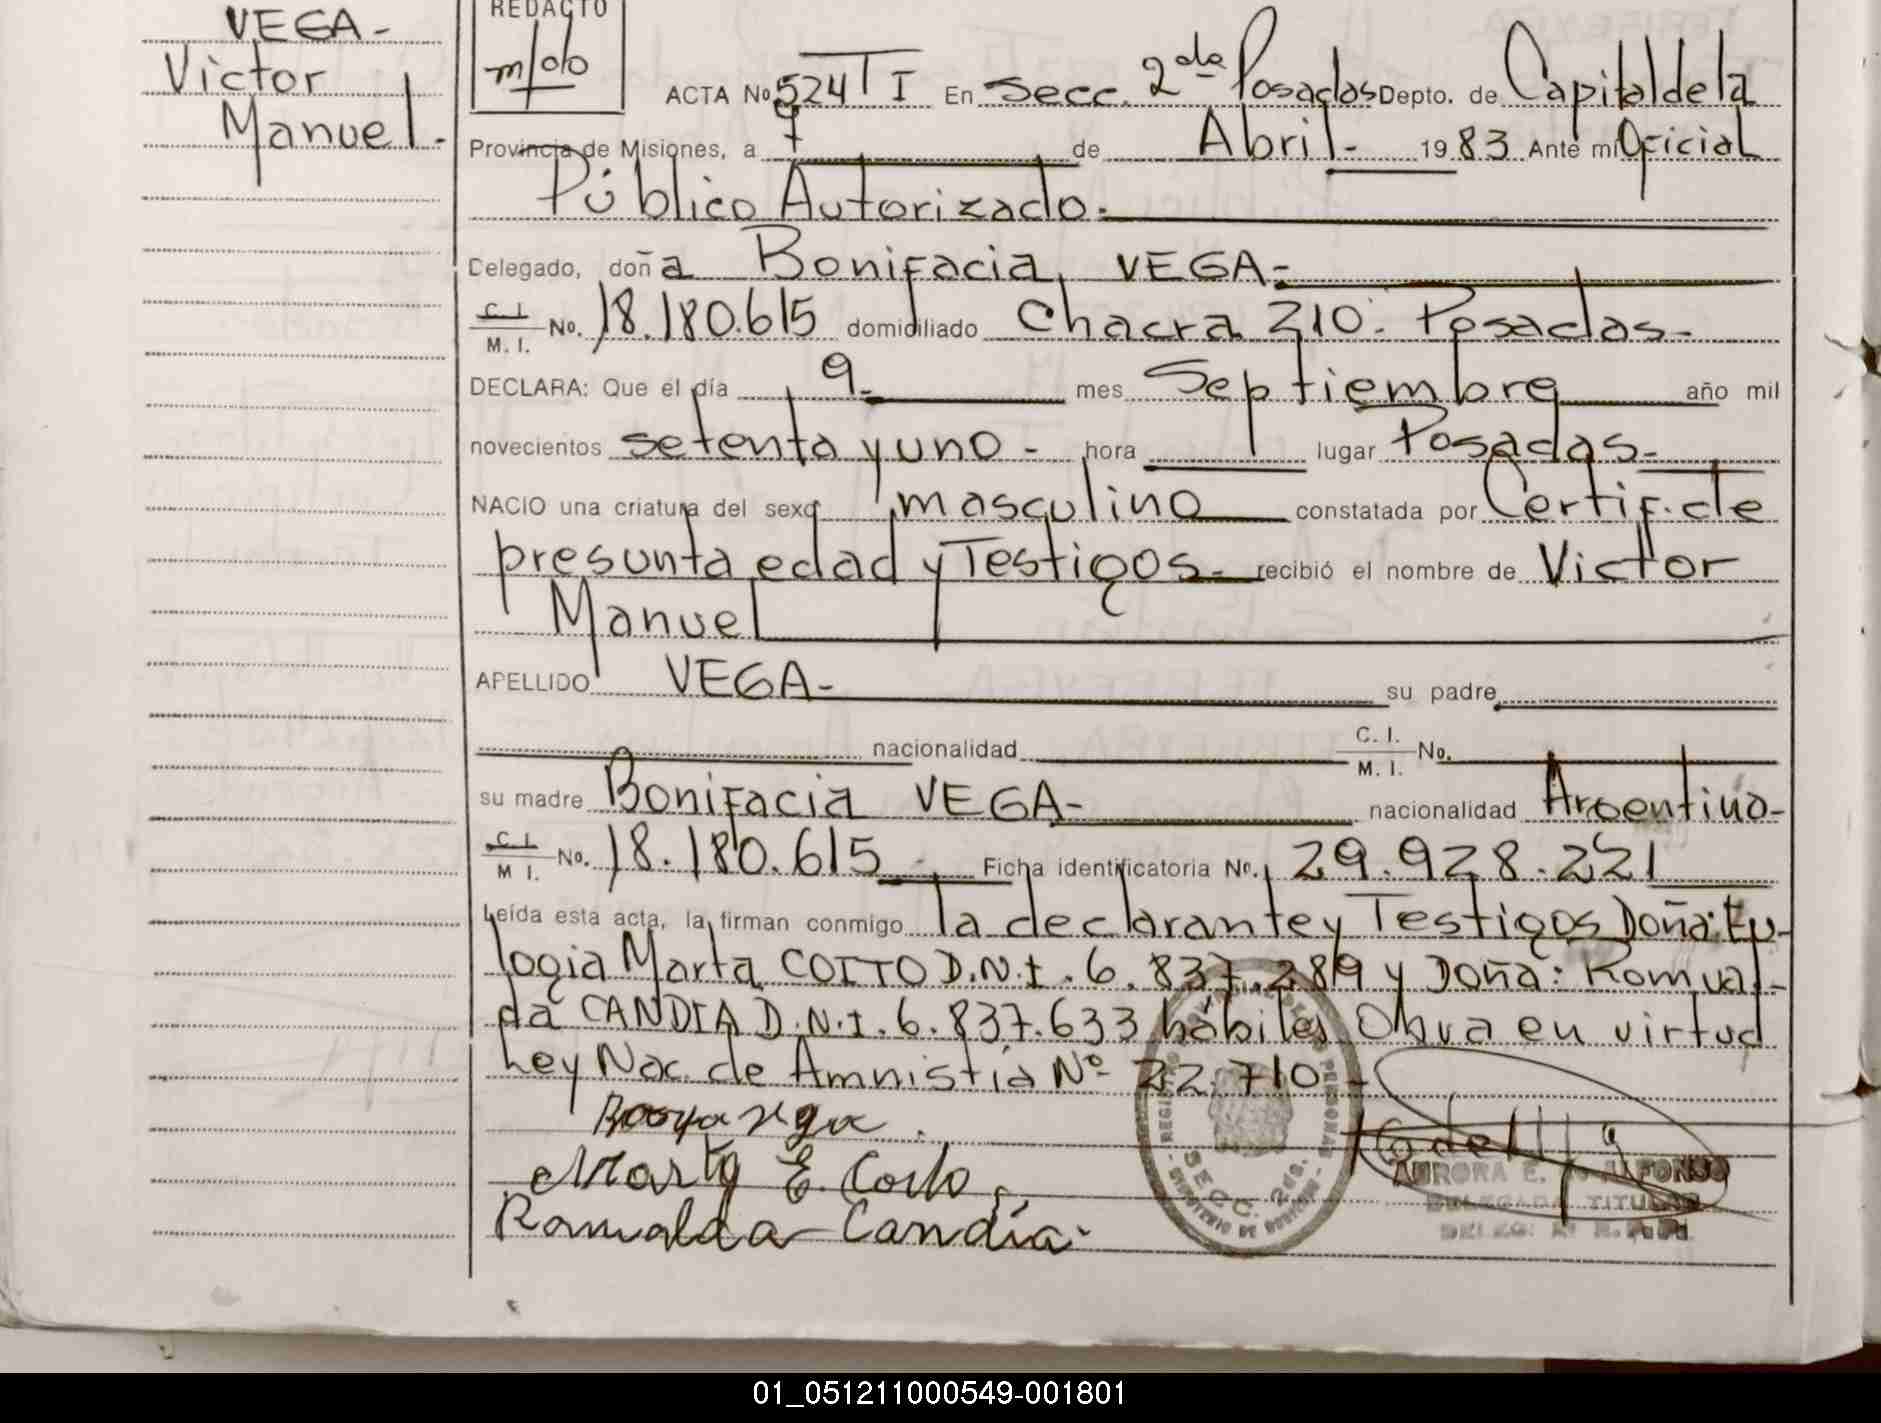 VEGA-
Victor
Manuel.
REDACTO
ACTA No 524 T I En Secc. 2da Posadas Depto. de Capital de la
Provincia de Misiones, a 7 de Abril- 1983 Ante mi Oficial
Público Autorizado.
Delegado, doña Bonifacia VEGA-
C. I. M. I. No. 18.180.615 domiciliado Chacra 210- Posadas-
DECLARA: Que el día 9- mes Septiembre año mil
novecientos setenta y uno - hora lugar Posadas-
NACIO una criatura del sexo masculino constatada por Certif. de
presunta edad y Testigos- recibió el nombre de Victor
Manuel
APELLIDO VEGA- su padre
nacionalidad C. I. M. I. No.
su madre Bonifacia VEGA- nacionalidad Argentina-
C. I. M I. No. 18.180.615 Ficha identificatoria No. 29.928.221
Leída esta acta, la firman conmigo la declarante y Testigos Doña: Eu-
logia Marta COITO D.N.I. 6.837.289 y Doña: Romual-
da CANDIA D.N.I. 6.837.633 hábiles Obra en virtud
Ley Nac. de Amnistia Nº 22.710-
Marta E. Coito
Romualda Candía.
SECC. 2da.
AURORA E. ALFONSO
DELEGADA TITULAR
01_051211000549-001801